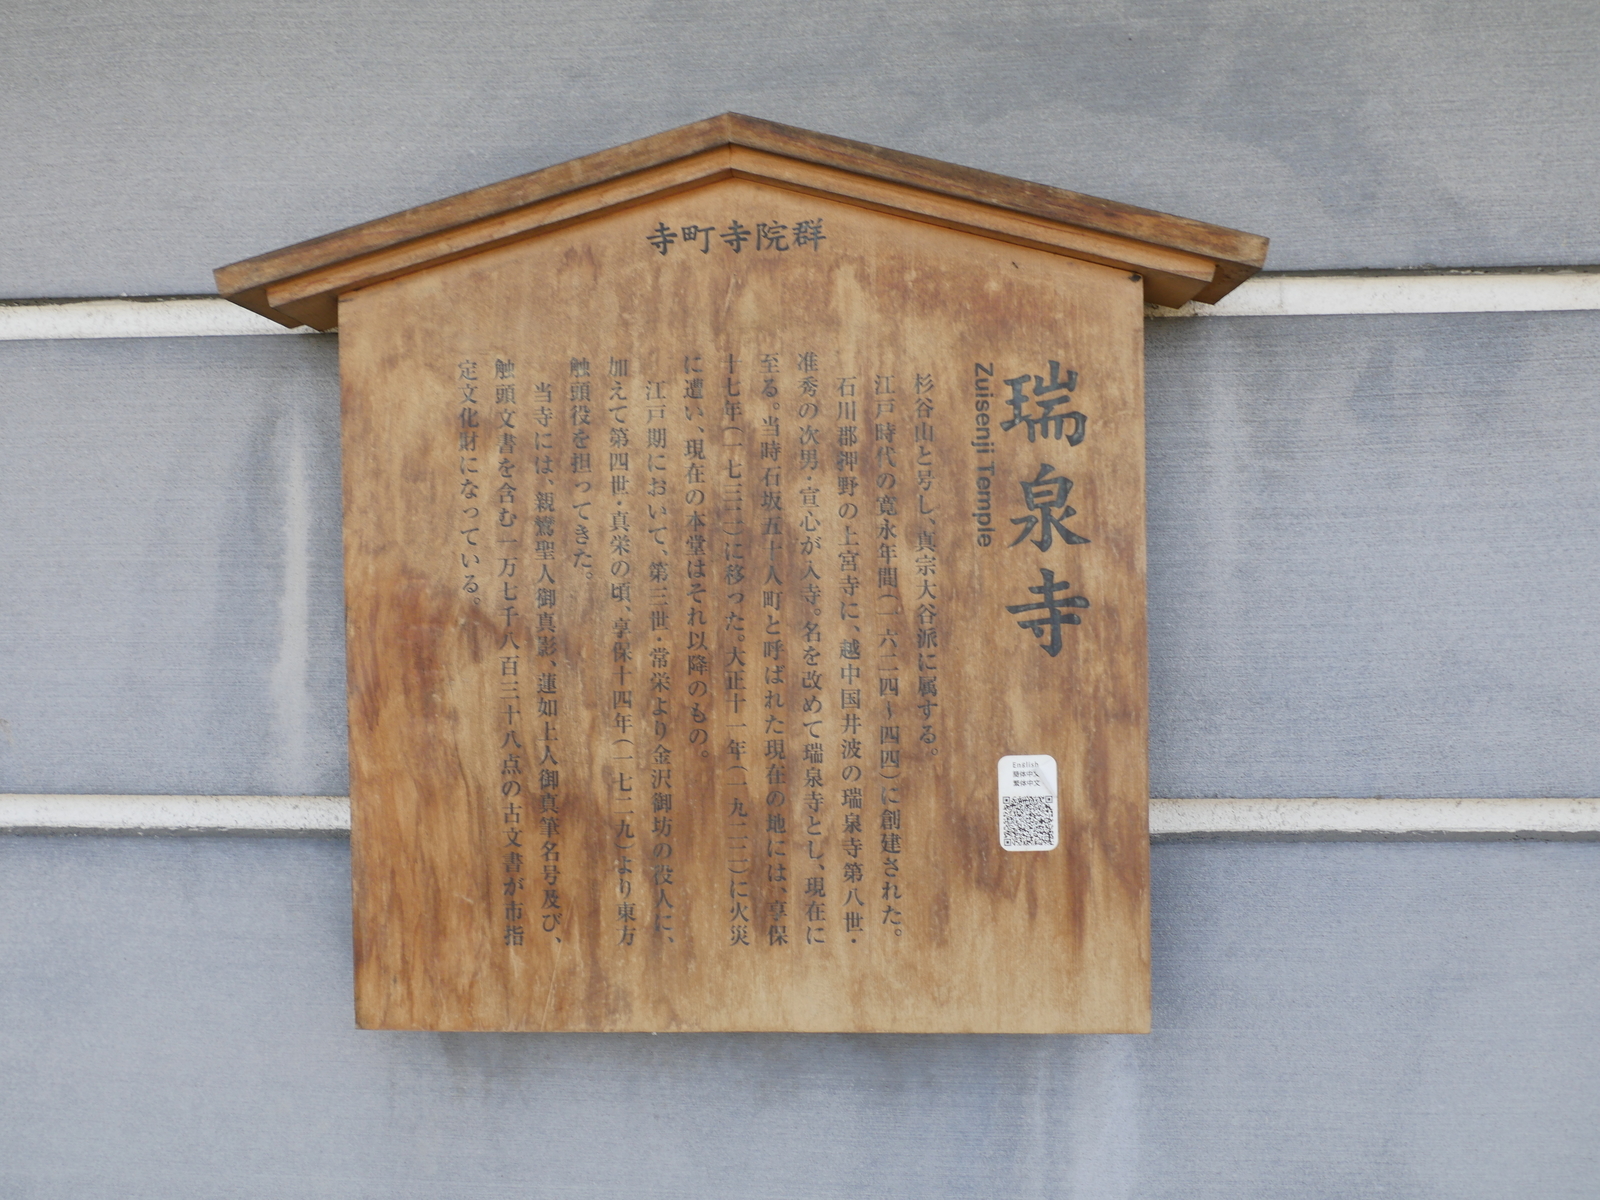 寺町寺院群
瑞泉寺
Zuisenji Temple
English
簡体中文
繁体中文
杉谷山と号し、真宗大谷派に属する。
江戸時代の寛永年間(一六二四~四四)に創建された。
石川郡押野の上宮寺に、越中国井波の瑞泉寺第八世・
准秀の次男・宣心が入寺。名を改めて瑞泉寺とし、現在に
至る。当時石坂五十人町と呼ばれた現在の地には、享保
十七年(一七三二)に移った。大正十一年(一九二二)に火災
に遭い、現在の本堂はそれ以降のもの。
江戸期において、第三世・常栄より金沢御坊の役人に、
加えて第四世・真栄の頃、享保十四年(一七二九)より東方
触頭役を担ってきた。
当寺には、親鸞聖人御真影、蓮如上人御真筆名号及び、
触頭文書を含む一万七千八百三十八点の古文書が市指
定文化財になっている。